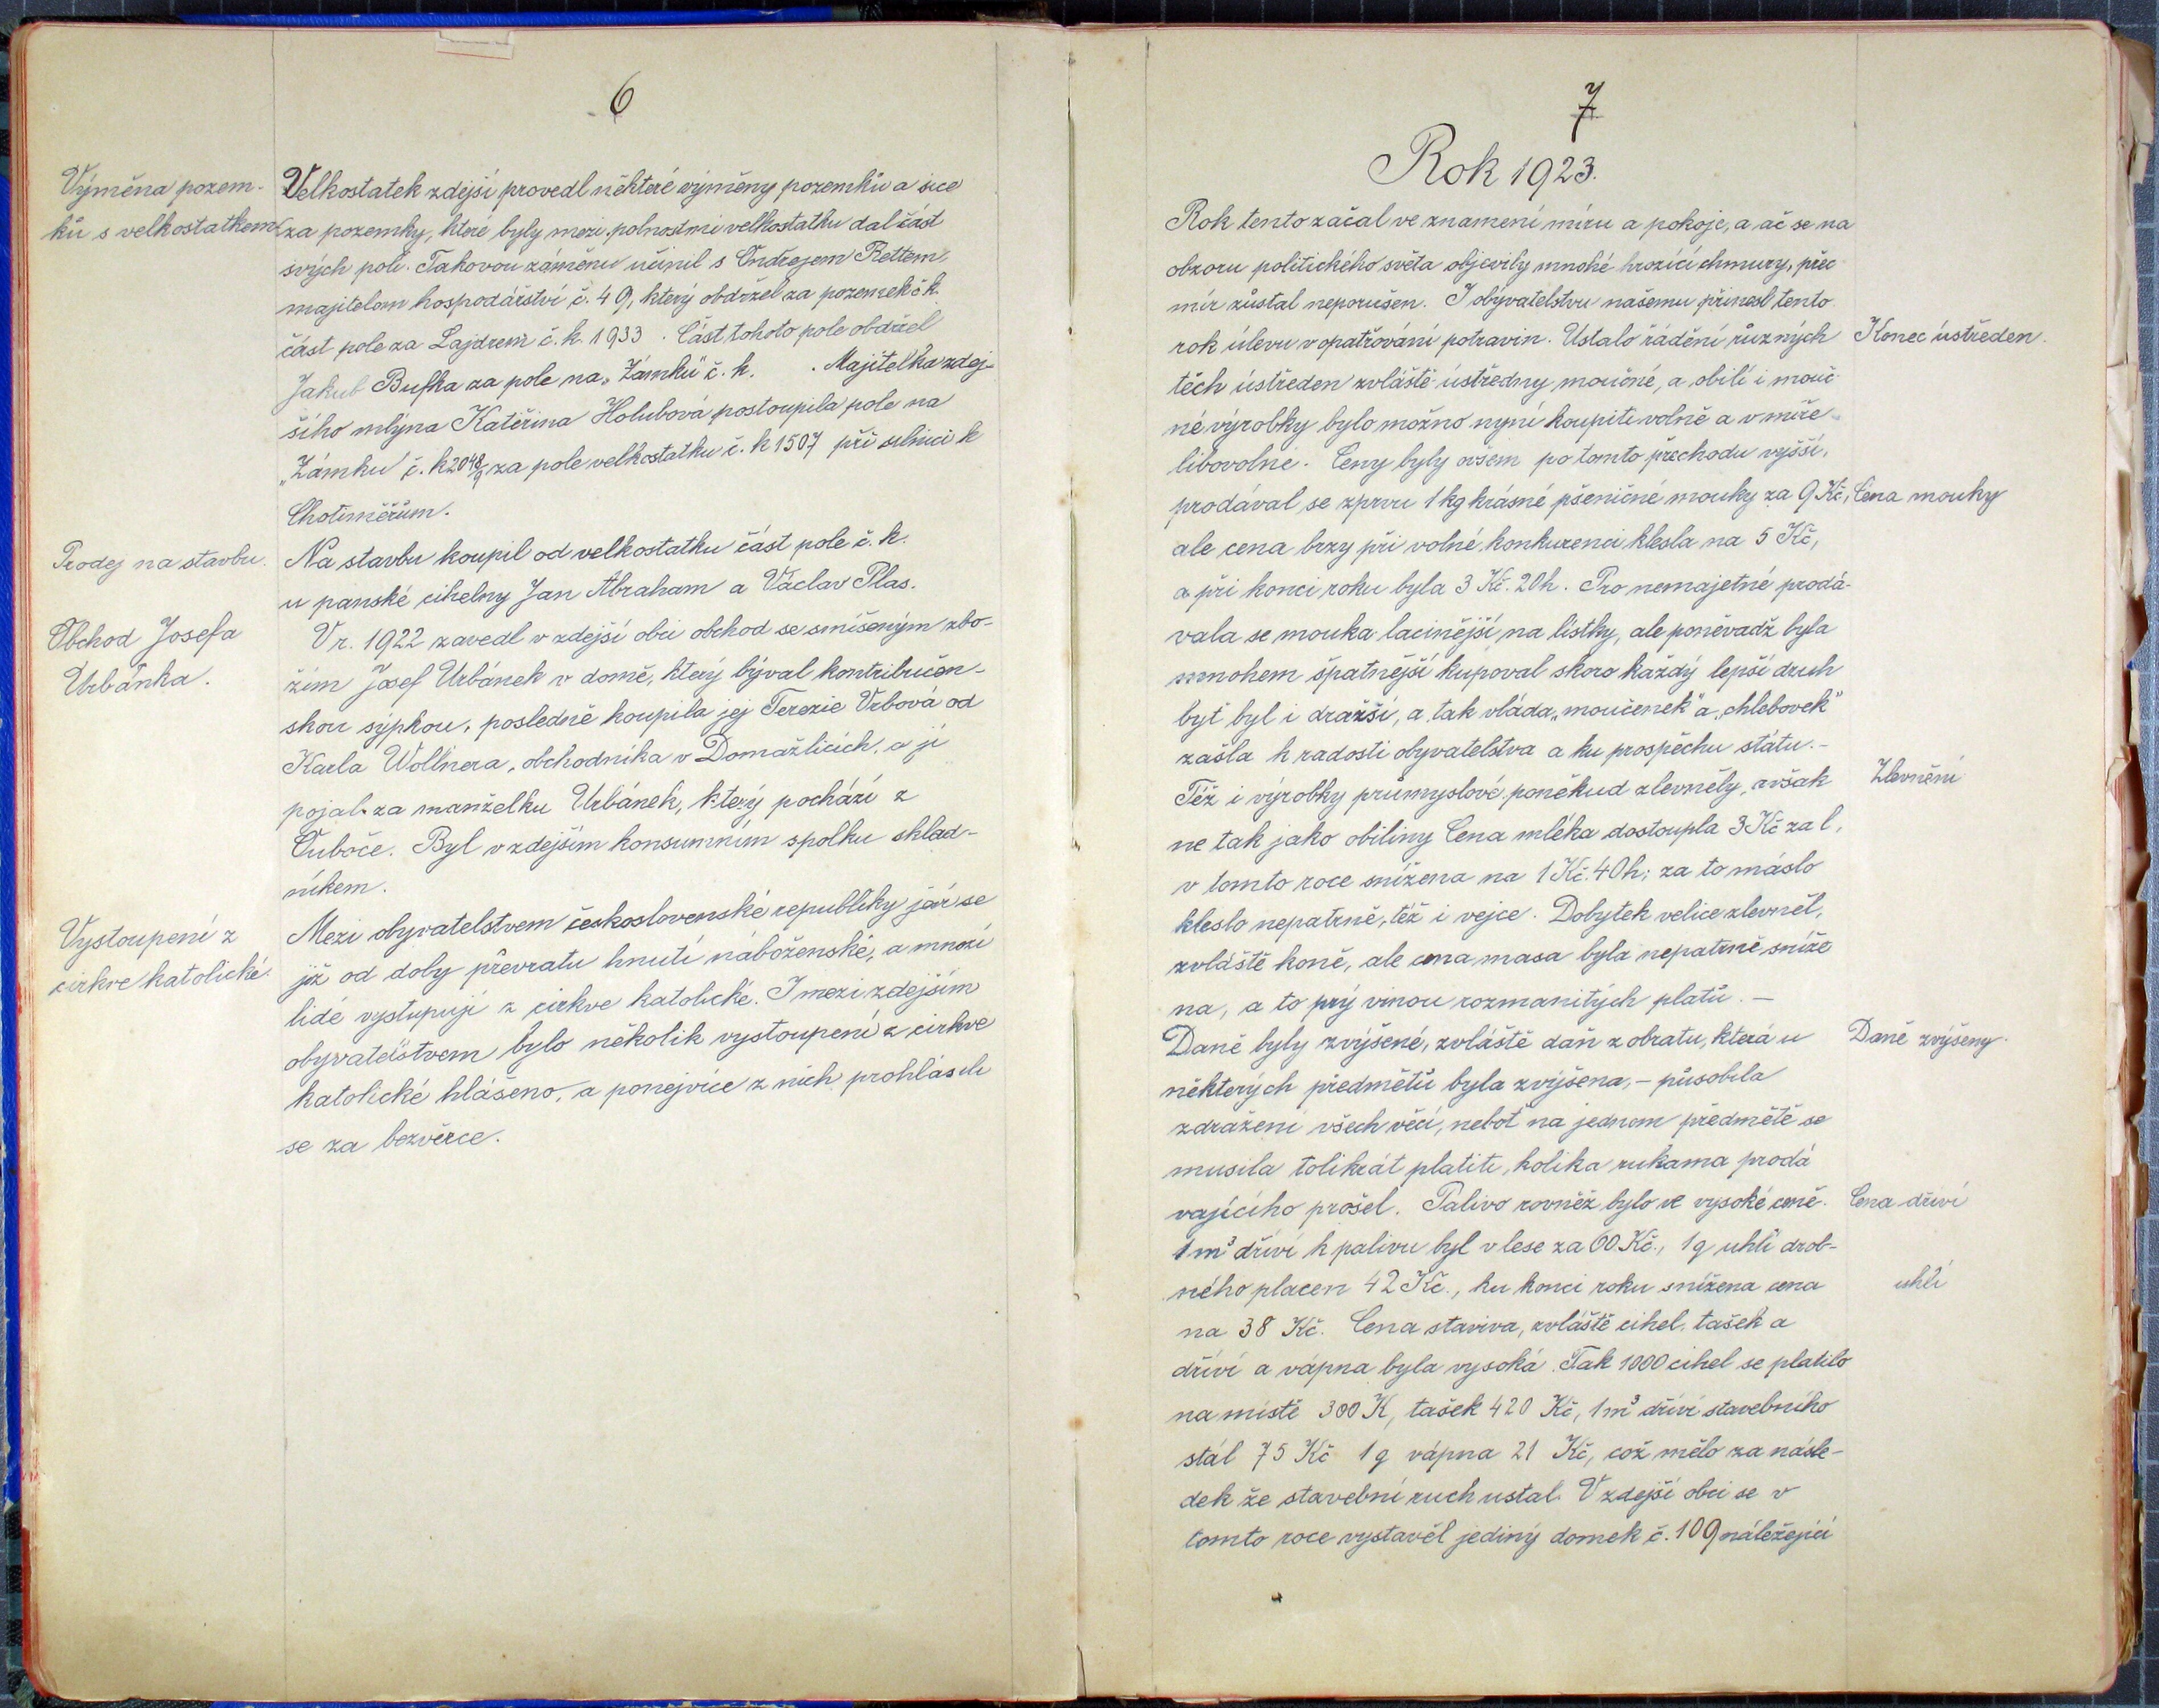 6
Výměna pozem-
ků s velkostatkem
Velkostatek zdejší provedl některé výměny pozemků a sice
za pozemky, které byly mezi polnostmi velkostatku dal část
svých polí. Takovou záměnu učinil s Ondřejem Rettem,
majitelem hospodářství č. 49, který obdržel za pozemek č k.
část pole za Lajdrem č. k. 1933. Část tohoto pole obdržel
Jakub Bufka za pole na „Zámku" č. k. . Majitelka zdej-
šího mlýna Kateřina Holubová postoupila pole na
„Zámku" č. k 2048/ za pole velkostatku č. k 1507 při silnici k
Chotiměřům.
Prodej na stavbu.
Na stavbu koupil od velkostatku část pole č. k.
u panské cihelny Jan Abraham a Václav Plas.
Obchod Josefa
Urbánka.
V r. 1922 zavedl v zdejší obci obchod se smíšeným zbo-
žím Josef Urbánek v domě, který býval kontribučen-
skou sýpkou, posledně koupila jej Terezie Vrbová od
Karla Wollnera, obchodníka v Domažlicích, a ji
pojal za manželku Urbánek, který pochází z
Ouboče. Byl v zdejším konsumním spolku sklad-
níkem.
Vystoupení z
církve katolické.
Mezi obyvatelstvem československé republiky jár se
již od doby převratu hnutí náboženské, a mnozí
lidé vystupují z církve katolické. I mezi zdejším
obyvatelstvem bylo několik vystoupení z církve
katolické hlášeno, a ponejvíce z nich prohlásili
se za bezvěrce.
7
Rok 1923.
Rok tento začal ve znamení míru a pokoje, a ač se na
obzoru politického světa objevily mnohé hrozící chmury, přec
mír zůstal neporušen. I obyvatelstvu našemu přinesl tento
rok úlevu v opatřování potravin. Ustalo řádění různých
Konec ústředen.
těch ústředen zvláště ústředny moučné, a obilí i mouč
né výrobky bylo možno nyní koupiti volně a v míře
libovolné. Ceny byly ovšem po tomto přechodu vyšší,
prodával se zprvu 1 kg krásné pšeničné mouky za 9 Kč,
Cena mouky
ale cena brzy při volné konkurenci klesla na 5 Kč,
a při konci roku byla 3 Kč. 20 h. Pro nemajetné prodá-
vala se mouka lacinější, na lístky, ale poněvadž byla
mnohem špatnější kupoval skoro každý lepší druh
byť byl i dražší, a tak vláda „moučenek" a „chlebovek"
zašla k radosti obyvatelstva a ku prospěchu státu. -
Též i výrobky průmyslové poněkud zlevněly, avšak
Zlevnění
ne tak jako obiliny Cena mléka dostoupla 3 Kč za l,
v tomto roce snížena na 1 Kč. 40 h; za to máslo
kleslo nepatrně, též i vejce. Dobytek velice zlevněl,
zvláště koně, ale cena masa byla nepatrně sníže
na, a to prý vinou rozmanitých platů. -
Daně byly zvýšené, zvláště daň z obratu, která u
Daně zvýšeny.
některých předmětů byla zvýšena, - působila
zdražení všech věcí, neboť na jednom předmětě se
musila tolikrát platiti, kolika rukama prodá
vajícího prošel. Palivo rovněž bylo ve vysoké ceně.
Cena dříví
1 m³ dříví k palivu byl v lese za 60 Kč., 1 q uhlí drob-
ného placen 42 Kč., ku konci roku snížena cena
uhlí
na 38 Kč. Cena staviva, zvláště cihel, tašek a
dříví a vápna byla vysoká. Tak 1000 cihel se platilo
na místě 300 K, tašek 420 Kč, 1 m³ dříví stavebního
stál 75 Kč 1 q vápna 21 Kč, což mělo za násle-
dek že stavební ruch ustal. V zdejší obci se v
tomto roce vystavěl jediný domek č. 109 náležející